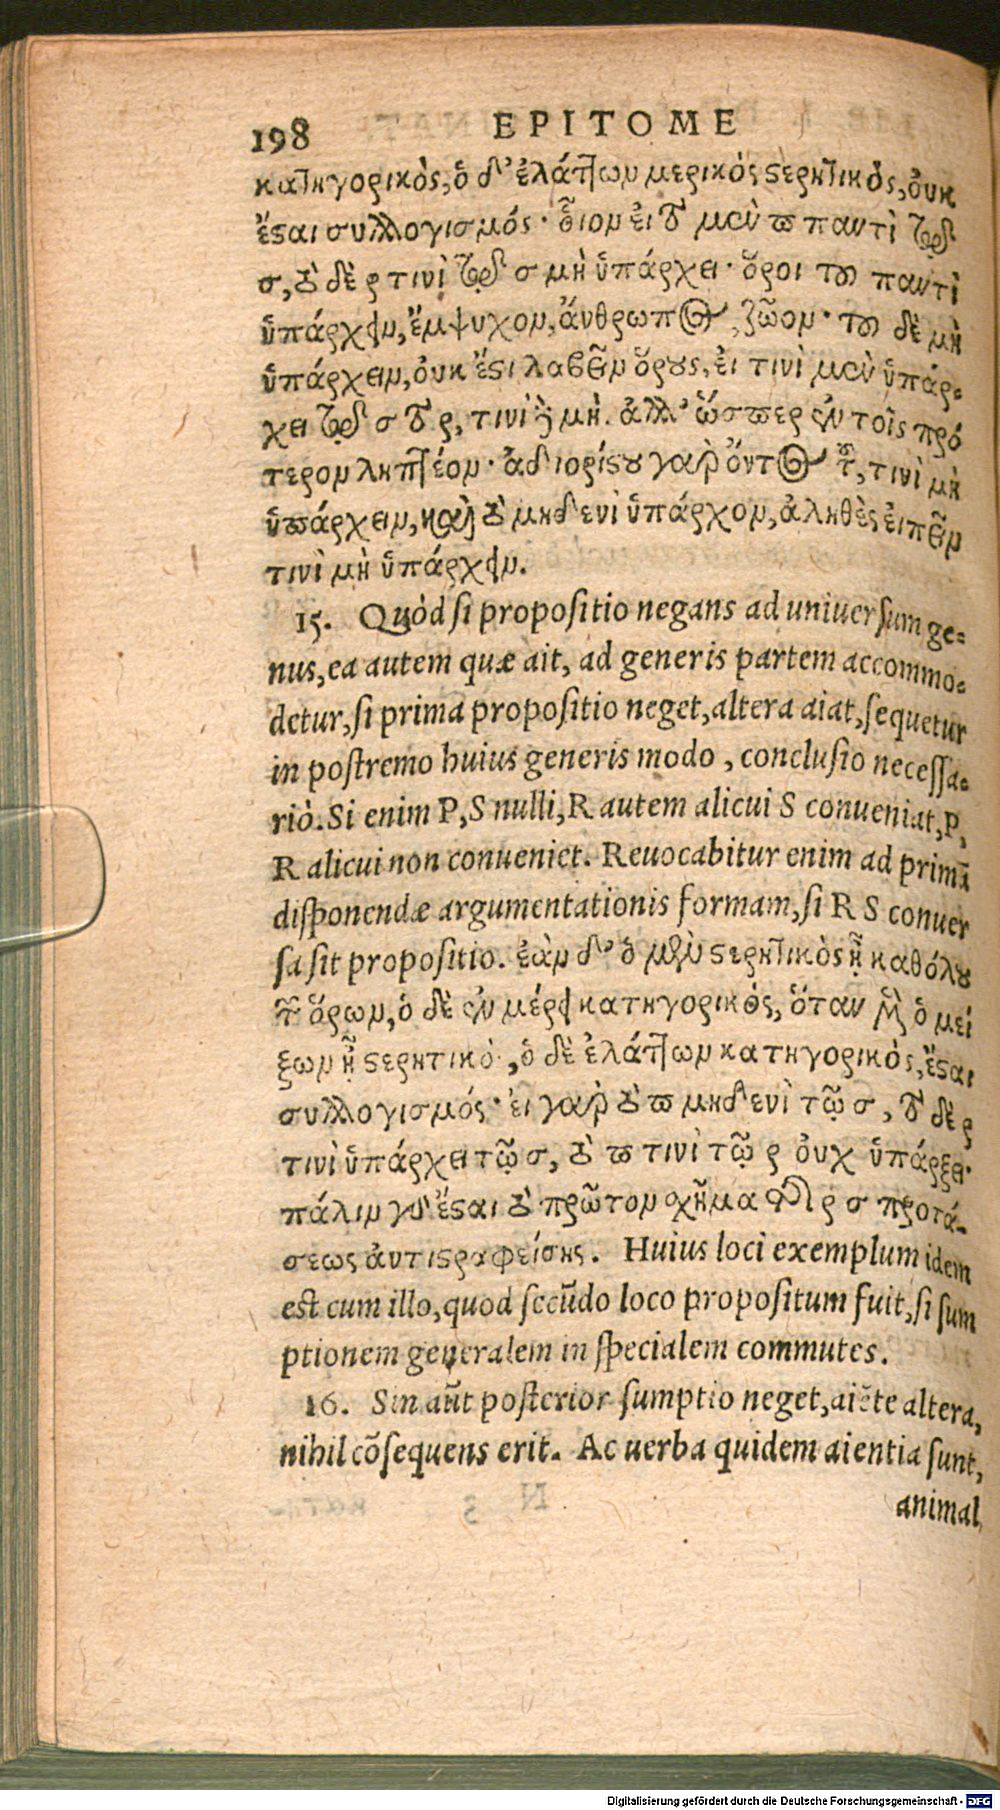 198 EPITOME
κατηγορικὸς, ὁ δ' ἐλάττων μερικὸς στερητικὸς, οὐκ
ἔσται συλλογισμός· οἷον εἰ τὸ μὲν π παντὶ τῷ
σ, τὸ δὲ ρ τινὶ τῷ σ μὴ ὑπάρχει· ὅροι τοῦ παντὶ
ὑπάρχειν, ἔμψυχον, ἄνθρωπος, ζῶον· τοῦ δὲ μὴ
ὑπάρχειν, οὐκ ἔστι λαβεῖν ὅρους, εἰ τινὶ μὲν ὑπάρ-
χει τῷ σ τὸ ρ, τινὶ δὲ μὴ. ἀλλ' ὥσπερ ἐν τοῖς πρό
τερον ληπτέον· ἀδιορίστου γὰρ ὄντος τοῦ, τινὶ μὴ
ὑπάρχειν, καὶ τὸ μηδενὶ ὑπάρχον, ἀληθὲς εἰπεῖν
τινὶ μὴ ὑπάρχειν.
15. Quòd si propositio negans ad uniuersum ge-
nus, ea autem quæ ait, ad generis partem accommo-
detur, si prima propositio neget, altera aiat, sequetur
in postremo huius generis modo, conclusio necessa-
riò. Si enim P, S nulli, R autem alicui S conueniat, P,
R alicui non conueniet. Reuocabitur enim ad primā
disponendæ argumentationis formam, si R S conuer
sa sit propositio. ἐὰν δ' ὁ μὲν στερητικὸς ᾖ καθόλου
τῶν ὅρων, ὁ δὲ ἐν μέρει κατηγορικὸς, ὅταν μὲν ὁ μεί
ζων ᾖ στερητικὸ·, ὁ δὲ ἐλάττων κατηγορικὸς, ἔσται
συλλογισμός· εἰ γὰρ τὸ π μηδενὶ τῷ σ, τὸ δὲ ρ
τινὶ ὑπάρχει τῷ σ, τὸ π τινὶ τῷ ρ οὐχ ὑπάρξει·
πάλιν γὰρ ἔσται τὸ πρῶτον σχῆμα τῆς ρ σ προτά-
σεως ἀντιστραφείσης. Huius loci exemplum idem
est cum illo, quod secūdo loco propositum fuit, si sum
ptionem generalem in specialem commutes.
16. Sin aūt posterior sumptio neget, aiēte altera,
nihil cōsequens erit. Ac uerba quidem aientia sunt,
animal
Digitalisierung gefördert durch die Deutsche Forschungsgemeinschaft - DFG